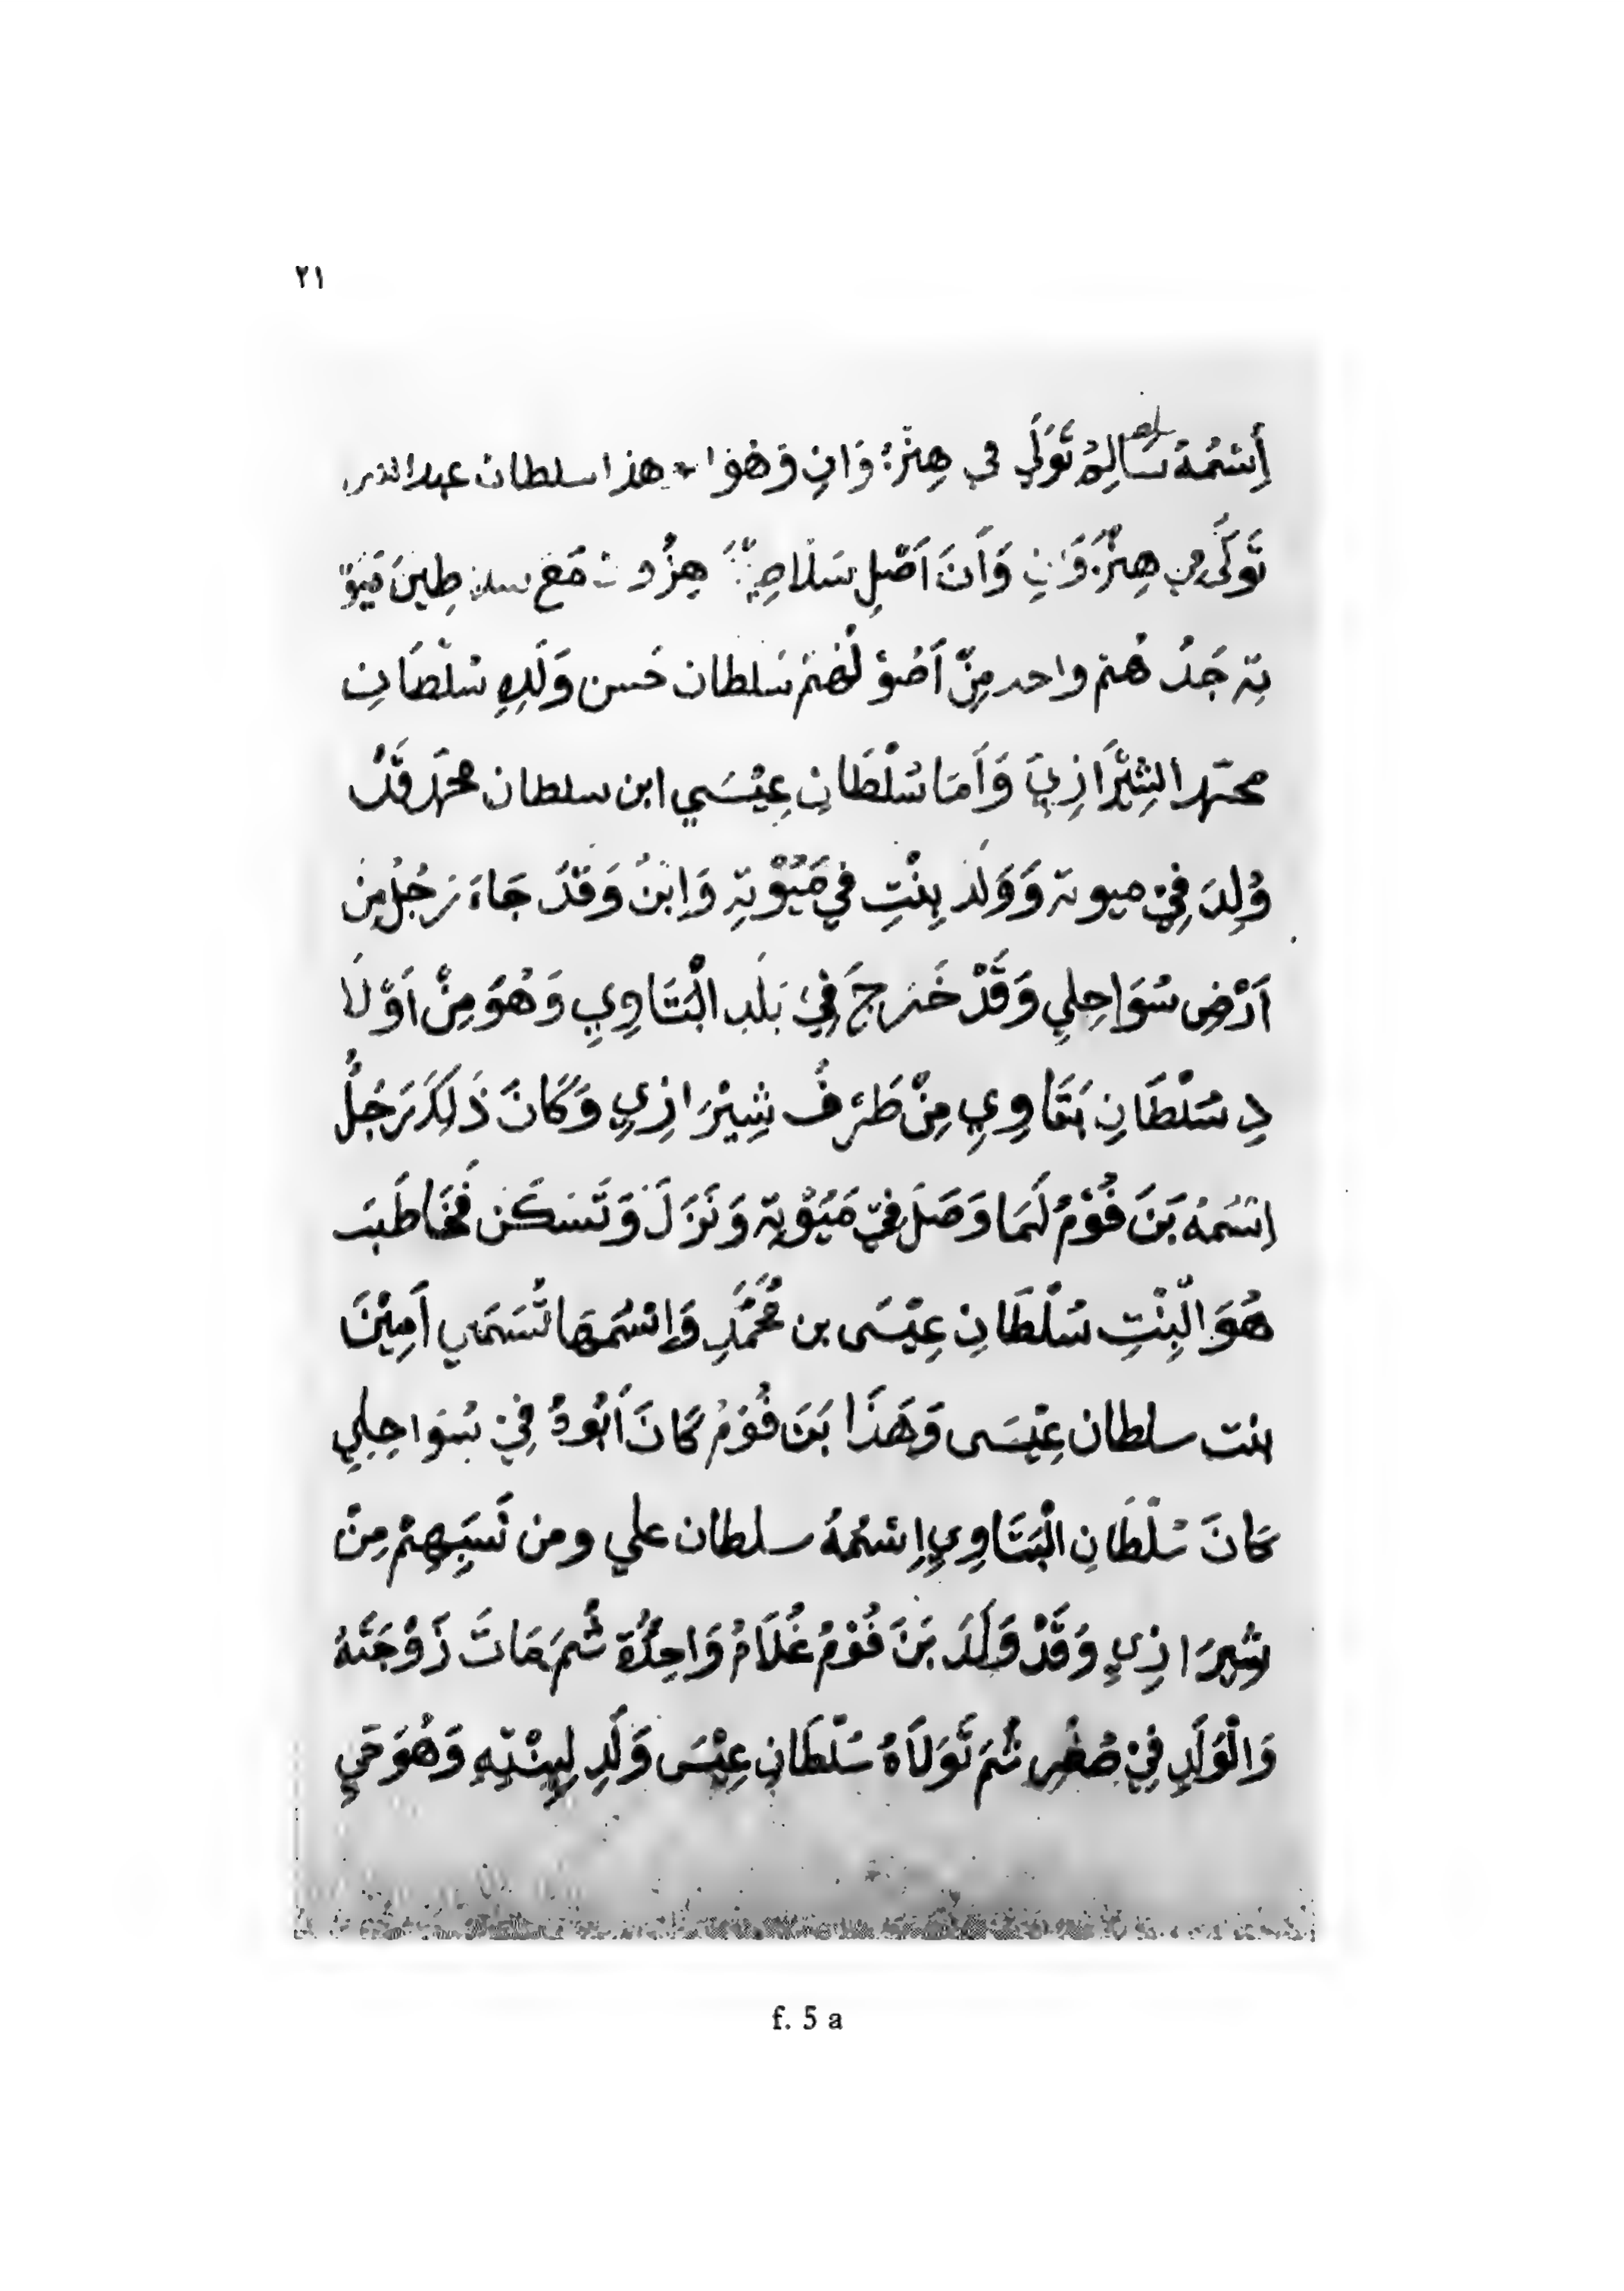 ٢١
إِسْمُهُ سَالِمُ تَوَلَّي في هِنْزُ وَانِ وَهُوَا هذا سلطان عبد الله
تَوَلَّى هِنْزُوَانِ وَأَنَ أَصْلِ سَلَاطِينَ هِنْزُوَانْ مَعَ سلاطِينَ مَيُوْ
تِهْ جَدُ هُمْ واحد مِنْ أَصُوْ لُهُمْ سَلطان حَسن وَلَدِ سُلْطَانِ
محمّد الشِيْرَازِيَ وَأَمَا سُلْطَانِ عِيْسَي ابن سلطان محمّد قَدْ
وُلِدَ فِيْ ميوتة وَوَلَدَ بِنْتِ فِي مَيُوْتِهْ وَابْنُ وَقَدْ جَاءَ رَجُلُ مِنْ
أَرْضِ سُوَاحِلِي وَقَدْ خَرجَ فِيْ بَلَدِ الْبَتَاوِيِ وَهُوَ مِنْ أَوْلَا
دِ سُلْطَانِ بَتَاوِيِ مِنْ طَرَفُ شِيْرَازِيِ وَكَانَ ذَلِكَ رَجُلُ
اِسْمُهُ بَنَ فُوْمُ لَمَا وَصَلَ فِيْ مَيُوْتِهْ وَنَزَلَ وَتَسَكَن فَخَاطَبَ
هُوَ الْبِنْتِ سُلْطَانِ عِيْسَى بن مُحَمَّدِ وَإِسْمُهَا تُسَمَي أَمِيْنَ
بنت سلطان عِيْسَى وَهَذَا بَنَ فُوْمُ كَانَ اَبُوهُ فِيْ سُوَاحِلِي
كَانَ سُلْطَانِ الْبَتَاوِيِ إِسْمُهُ سلطان علي ومن نَسَبِهِمْ مِنْ
شِيرَازِيِ وَقَدْ وَلَدَ بَنَ فُوْمُ غُلَامُ وَاحِدُة ثُمَ مَاتَ زَوْجَتَهُ
وَالْوَلَدِ فِيْ صُغْرِ ثُمَ تَوَلَاهُ سُلْطَانِ عِيْسَى وَلَدِ لِبِنْتِهِ وَهُوَ حَيِ
f. 5 a